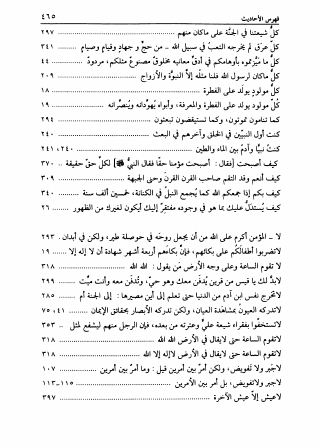 فهرس الأحاديث ٤٦٥
كلّ شيعتنا في الجنّة على مكان منهم ٢٩٧
كلّ عرق لم يخرجه التعب في سبيل الله .. من حجّ و جهادٍ وقيام وصيام ٣٤١
كلّ ما ميّزتموه بأوهامكم في أدقّ معانيه مخلوقٌ مصنوعٌ مثلكم، مردودٌ ٤٤
كلّ ماكان لرسول الله فلنا مثلُه إلاّ النبوّة والأزواج ٢٠٩
كلّ مولود يولد على الفطرة ١٨
كلّ مولود يولد على الفطرة والمعرفة، وأبواه يُهوّدانه ويُنصّرانه ١٩
كما تنامون تموتون، وكما تستيقضون تبعثون ٢٩٤
كنت أول النبيّين في الخلق وآخرهم في البعث ٢٤٠
كنتُ نبيّاً وآدم بين الماء والطين ٢٤٠، ٢٤١
كيف أصبحت [فقال: أصبحت مؤمنا حقّا فقال النبيّ] لكلّ حقّ حقيقة ٣٧٠
كيف أنعم وقد التقم صاحب القرن القرنَ وحنى الجبهة ٣٠٩
كيف بكم إذا جمعكم الله كما يُجمع النبلُ في الكنانة، خمسين ألف سنة ٣٤٠
كيف يُستدلُّ عليك بما هو في وجوده مفتقرٌ إليك أيكون لغيرك من الظهور ٢٦
لا - المؤمن أكرم على الله من أن يجعل روحَه في حوصلة طير، ولكن في أبدان ٢٩٣
لاتضربوا أطفالَكُم على بكائهم، فإنّ بكاءهم أربعة أشهر شهادة أن لا إله إلاّ ١٩
لا تقوم الساعة وعلى وجه الأرض مَن يقول: الله الله ٣١٨
لابدّ لك يا قيس من قرين يُدفَن معك وهو حيّ، وتُدفَن معه وأنت ميّت ٢٩٩
لاتخرج نفس ابن آدم من الدنيا حتى تعلم إلى أين مصيرها: إلى الجنة أم ٢٨٥
لاتدركه العيون بمشاهدة العيان، ولكن تدركه الأبصار بحقائق الإيمان ٤١، ٧٥
لاتستخفّوا بفقراء شيعة عليّ وعترته من بعده، فإنّ الرجل منهم ليشفع لمثل ٣٥٣
لاتقوم الساعة حتى لايقال في الأرض الله الله ٣١٨
لاتقوم الساعة حتى لايقال في الأرض لاإله إلا الله ٣١٨
لاجبر ولا تفويض، ولكن أمرٌ بين أمرين قيل: وما أمرٌ بين أمرين ١٠٧
لاجبر ولاتفويض، بل أمر بين الأمرين ١١٣-١١٥
لاعيش إلاّ عيش الآخرة ٣٩٧